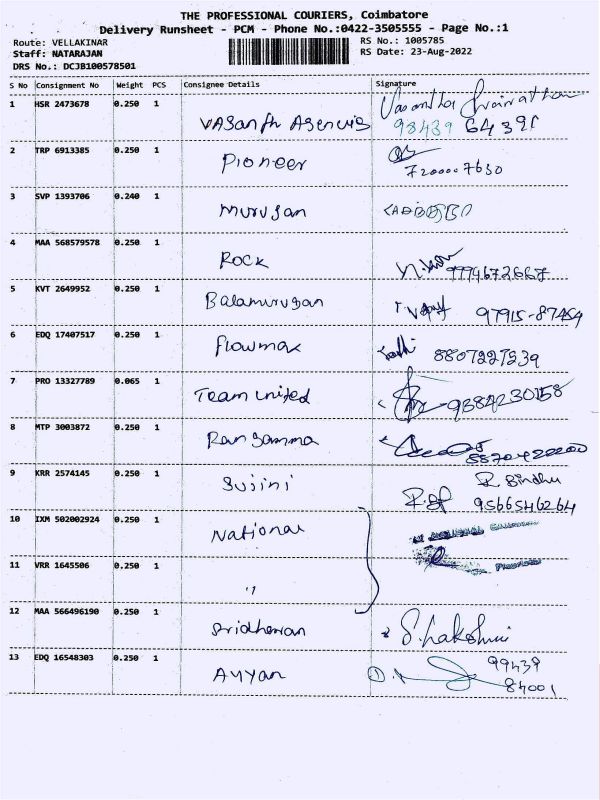 THE PROFESSIONAL COURIERS, Coimbatore
Delivery Runsheet - PCM - Phone No.:0422-3505555 - Page No.:1
Route: VELLAKINAR RS No.: 1005785
Staff: NATARAJAN RS Date: 23-Aug-2022
DRS No.: DCJB100578501
S No Consignment No Weight PCS Consignee Details Signature
1 HSR 2473678 0.250 1
Vasanth Agencies 98439 64391
2 TRP 6913385 0.250 1
Pioneer 720000 7630
3 SVP 1393706 0.240 1
Murugan
4 MAA 568579578 0.250 1
Rock
5 KVT 2649952 0.250 1
Balamurugan 97915-87454
6 EDQ 17407517 0.250 1
Flowmax 8807227539
7 PRO 13327789 0.065 1
Team United 9384230158
8 MTP 3003872 0.250 1
Rangamma
9 KRR 2574145 0.250 1 R. Bindhu
Sujini 9566546264
10 IXM 502002924 0.250 1
National
11 VRR 1645506 0.250 1
"
12 MAA 566496190 0.250 1
Sridharan S. Lakshmi
13 EDQ 16548303 0.250 1 99439
Ayyan 84001